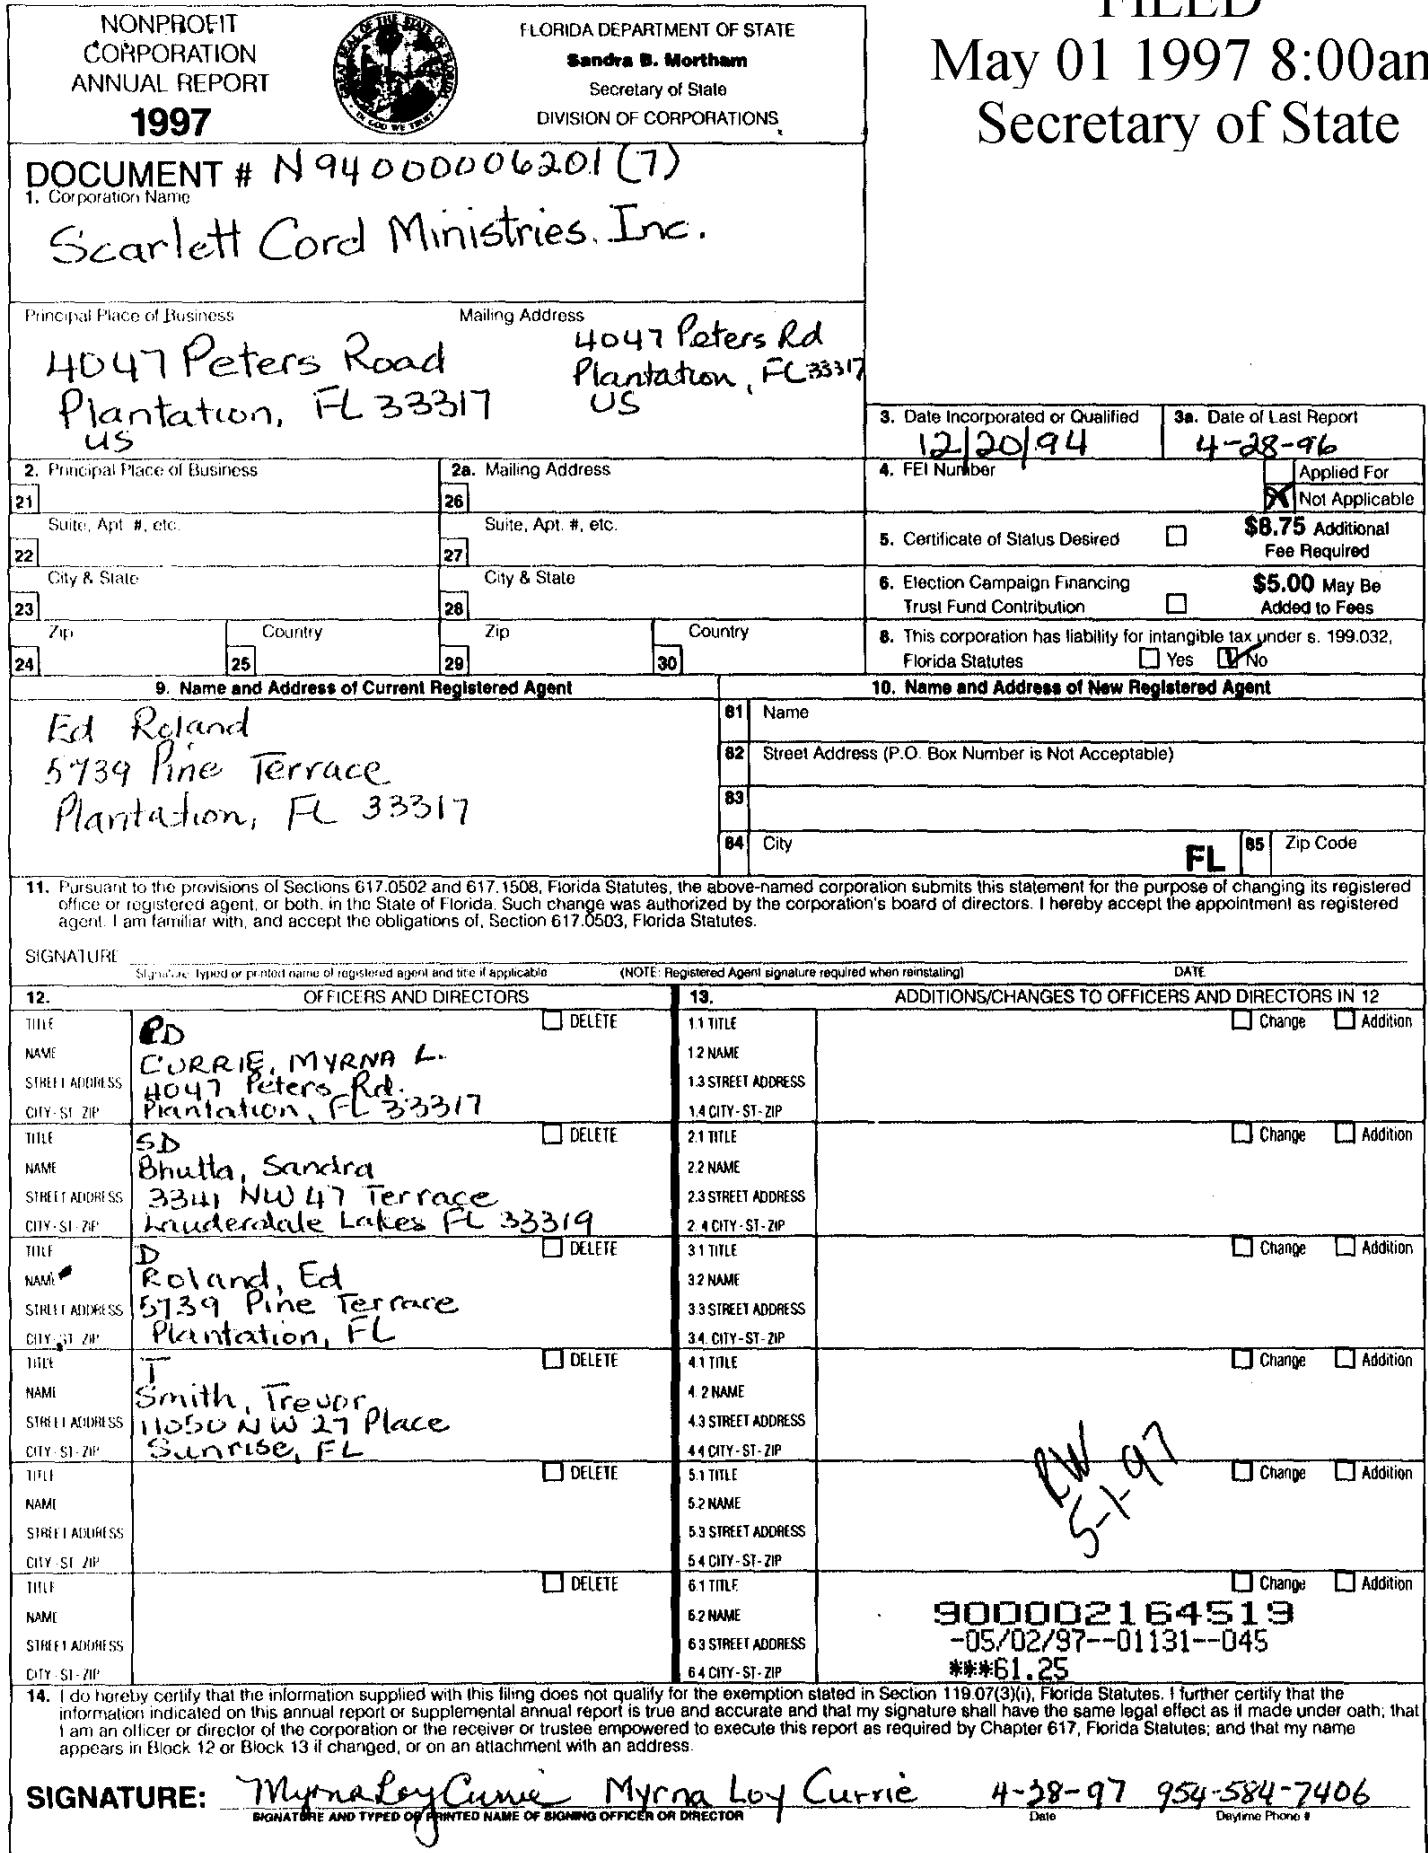 NONPROFIT
CORPORATION
ANNUAL REPORT
1997
GREAT SEAL OF THE STATE OF FLORIDA
IN GOD WE TRUST
FLORIDA DEPARTMENT OF STATE
Sandra B. Mortham
Secretary of State
DIVISION OF CORPORATIONS
FILED
May 01 1997 8:00am
Secretary of State
DOCUMENT # N94000006201(7)
1. Corporation Name
Scarlett Cord Ministries, Inc.
Principal Place of Business
4047 Peters Road
Plantation, FL 33317
US
Mailing Address
4047 Peters Rd
Plantation, FL 33317
US
3. Date Incorporated or Qualified
12/20/94
3a. Date of Last Report
4-28-96
2. Principal Place of Business
21
2a. Mailing Address
26
4. FEI Number
Applied For
X Not Applicable
Suite, Apt #, etc.
22
Suite, Apt. #, etc.
27
5. Certificate of Status Desired
$8.75 Additional
Fee Required
City & State
23
City & State
28
6. Election Campaign Financing
Trust Fund Contribution
$5.00 May Be
Added to Fees
Zip
24
Country
25
Zip
29
Country
30
8. This corporation has liability for intangible tax under s. 199.032,
Florida Statutes Yes No
9. Name and Address of Current Registered Agent
Ed Roland
5739 Pine Terrace
Plantation, FL 33317
10. Name and Address of New Registered Agent
81 Name
82 Street Address (P.O. Box Number is Not Acceptable)
83
84 City
FL
85 Zip Code
11. Pursuant to the provisions of Sections 617.0502 and 617.1508, Florida Statutes, the above-named corporation submits this statement for the purpose of changing its registered
office or registered agent, or both, in the State of Florida. Such change was authorized by the corporation's board of directors. I hereby accept the appointment as registered
agent. I am familiar with, and accept the obligations of, Section 617.0503, Florida Statutes.
SIGNATURE
Signature typed or printed name of registered agent and title if applicable
(NOTE: Registered Agent signature required when reinstating)
DATE
12. OFFICERS AND DIRECTORS
13. ADDITIONS/CHANGES TO OFFICERS AND DIRECTORS IN 12
TITLE PD DELETE
NAME CURRIE, MYRNA L.
STREET ADDRESS 4047 Peters Rd.
CITY-ST-ZIP Plantation, FL 33317
1.1 TITLE Change Addition
1.2 NAME
1.3 STREET ADDRESS
1.4 CITY-ST-ZIP
TITLE SD DELETE
NAME Bhutta, Sandra
STREET ADDRESS 3341 NW 47 Terrace
CITY-ST-ZIP Lauderdale Lakes FL 33319
2.1 TITLE Change Addition
2.2 NAME
2.3 STREET ADDRESS
2.4 CITY-ST-ZIP
TITLE D DELETE
NAME Roland, Ed
STREET ADDRESS 5739 Pine Terrace
CITY-ST-ZIP Plantation, FL
3.1 TITLE Change Addition
3.2 NAME
3.3 STREET ADDRESS
3.4. CITY-ST-ZIP
TITLE T DELETE
NAME Smith, Trevor
STREET ADDRESS 11050 NW 27 Place
CITY-ST-ZIP Sunrise, FL
4.1 TITLE Change Addition
4.2 NAME
4.3 STREET ADDRESS
4.4 CITY-ST-ZIP
TITLE DELETE
NAME
STREET ADDRESS
CITY-ST-ZIP
5.1 TITLE Change Addition
5.2 NAME
5.3 STREET ADDRESS
5.4 CITY-ST-ZIP
RW
5-1-97
TITLE DELETE
NAME
STREET ADDRESS
CITY-ST-ZIP
6.1 TITLE Change Addition
6.2 NAME
6.3 STREET ADDRESS
6.4 CITY-ST-ZIP
9000002164519
-05/02/97--01131--045
***61.25
14. I do hereby certify that the information supplied with this filing does not qualify for the exemption stated in Section 119.07(3)(i), Florida Statutes. I further certify that the
information indicated on this annual report or supplemental annual report is true and accurate and that my signature shall have the same legal effect as if made under oath; that
I am an officer or director of the corporation or the receiver or trustee empowered to execute this report as required by Chapter 617, Florida Statutes; and that my name
appears in Block 12 or Block 13 if changed, or on an attachment with an address.
SIGNATURE: Myrna Loy Currie Myrna Loy Currie 4-28-97 954-584-7406
SIGNATURE AND TYPED OR PRINTED NAME OF SIGNING OFFICER OR DIRECTOR Date Daytime Phone #